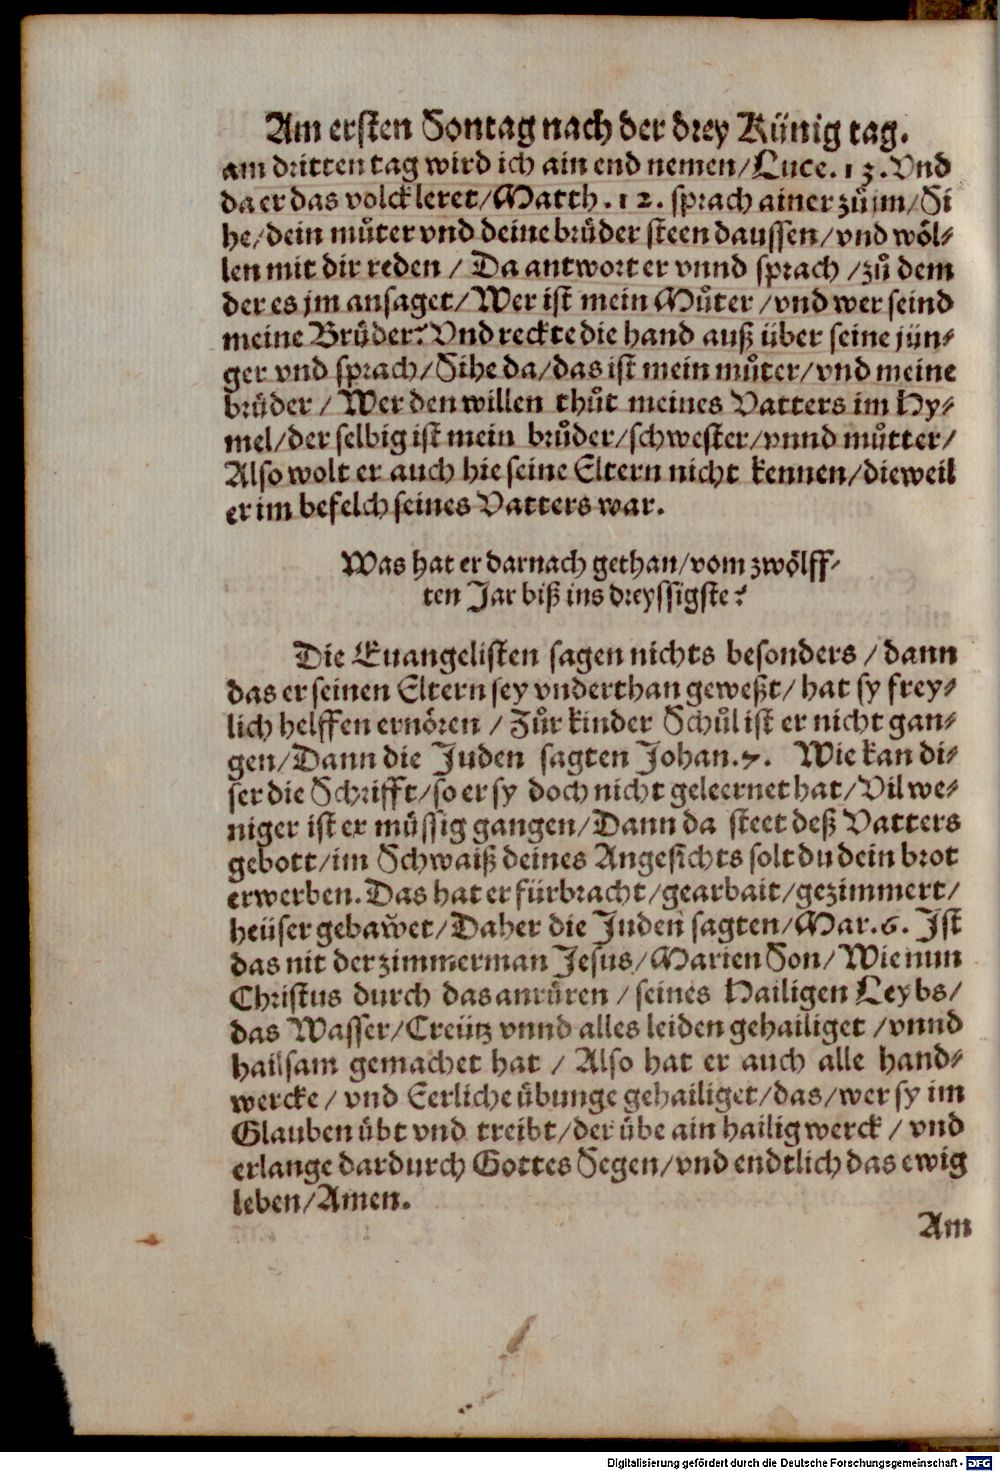 Am ersten Sontag nach der drey Künig tag.
am dritten tag wird ich ain end nemen/Luce.13.Vnd
da er das volck leret/Matth.12. sprach ainer zů jm/Si
he/dein můter vnd deine brůder steen daussen/vnd wöl-
len mit dir reden / Da antwort er vnnd sprach /zů dem
der es jm ansaget/Wer ist mein Můter /vnd wer seind
meine Brůder? Vnd reckte die hand auß über seine jün-
ger vnd sprach/Sihe da/das ist mein můter/vnd meine
brůder / Wer den willen thůt meines Vatters im Hy-
mel/der selbig ist mein brůder/schwester/vnnd můtter/
Also wolt er auch hie seine Eltern nicht kennen/dieweil
er im befelch seines Vatters war.
Was hat er darnach gethan/vom zwölff-
ten Jar biß ins dreyssigste?
Die Euangelisten sagen nichts besonders /dann
das er seinen Eltern sey vnderthan geweßt/hat sy frey-
lich helffen ernören / Zůr kinder Schůl ist er nicht gan-
gen/Dann die Juden sagten Johan.7. Wie kan di-
ser die Schrifft/so er sy doch nicht geleernet hat/Vil we-
niger ist er müssig gangen/Dann da steet deß Vatters
gebott/im Schwaiß deines Angesichts solt du dein brot
erwerben.Das hat er fürbracht/gearbait/gezimmert/
heüser gebawet/Daher die Juden sagten/Mar.6. Ist
das nit der zimmerman Jesus/Marien Son/Wie nun
Christus durch das anrüren /seines Hailigen Leybs/
das Wasser/Creütz vnnd alles leiden gehailiget /vnnd
hailsam gemachet hat / Also hat er auch alle hand-
wercke / vnd Eerliche übunge gehailiget/das/wer sy im
Glauben übt vnd treibt/der übe ain hailig werck / vnd
erlange dardurch Gottes Segen/vnd endtlich das ewig
leben/Amen.
Am
Digitalisierung gefördert durch die Deutsche Forschungsgemeinschaft - DFG